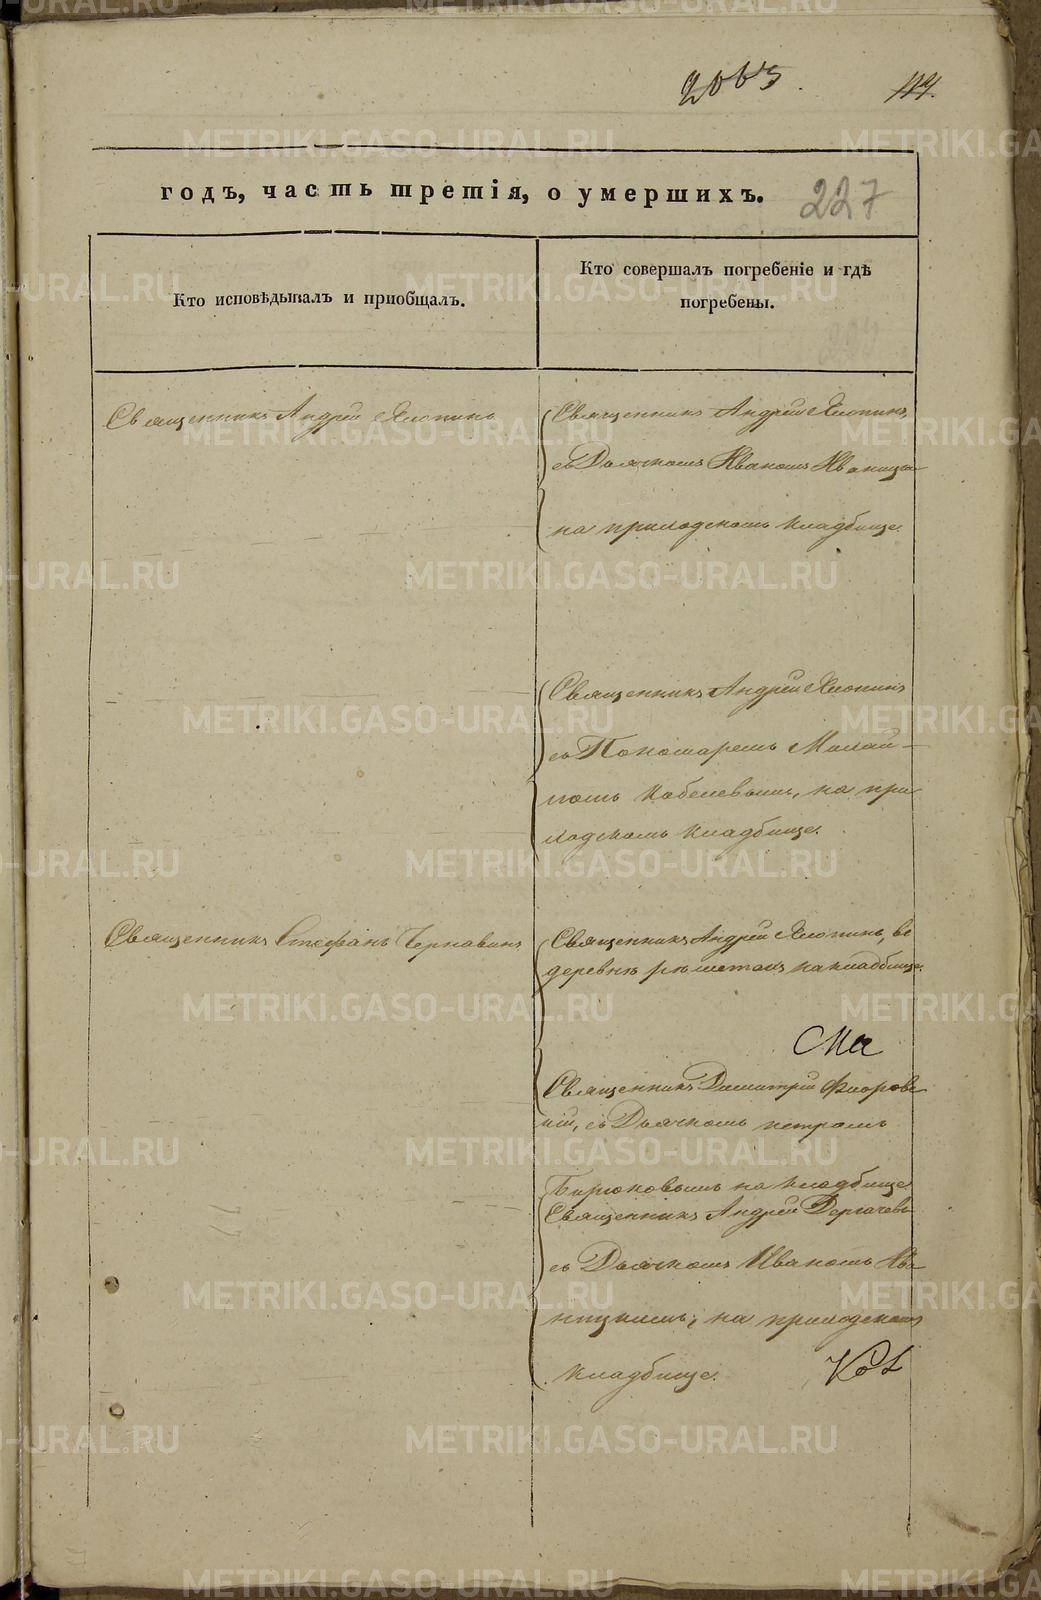 2065.
117.
годъ, часть третія, о умершихъ.
227
Кто исповѣдывалъ и пріобщалъ.
Кто совершалъ погребеніе и гдѣ
погребены.
Священникъ Андрей Хлопинъ
Священникъ Андрей Хлопинъ,
съ Дьячкомъ Иваномъ
на приходскомъ кладбище.
Священникъ Андрей Хлопинъ
съ Пономаремъ Михаи-
ломъ Кобелевымъ, на при
ходскомъ кладбище.
Священникъ Стефанъ Чернавинъ
Священникъ Андрей Хлопинъ, въ
деревнѣ на кладбище.
Священникъ Димитрій Флоровс
кій, съ Дьячкомъ петромъ
Бирюковымъ на кладбище
Священникъ Андрей Дергачевъ
съ Дьячкомъ Иваномъ
на приходскомъ
кладбище.
METRIKI.GASO-URAL.RU